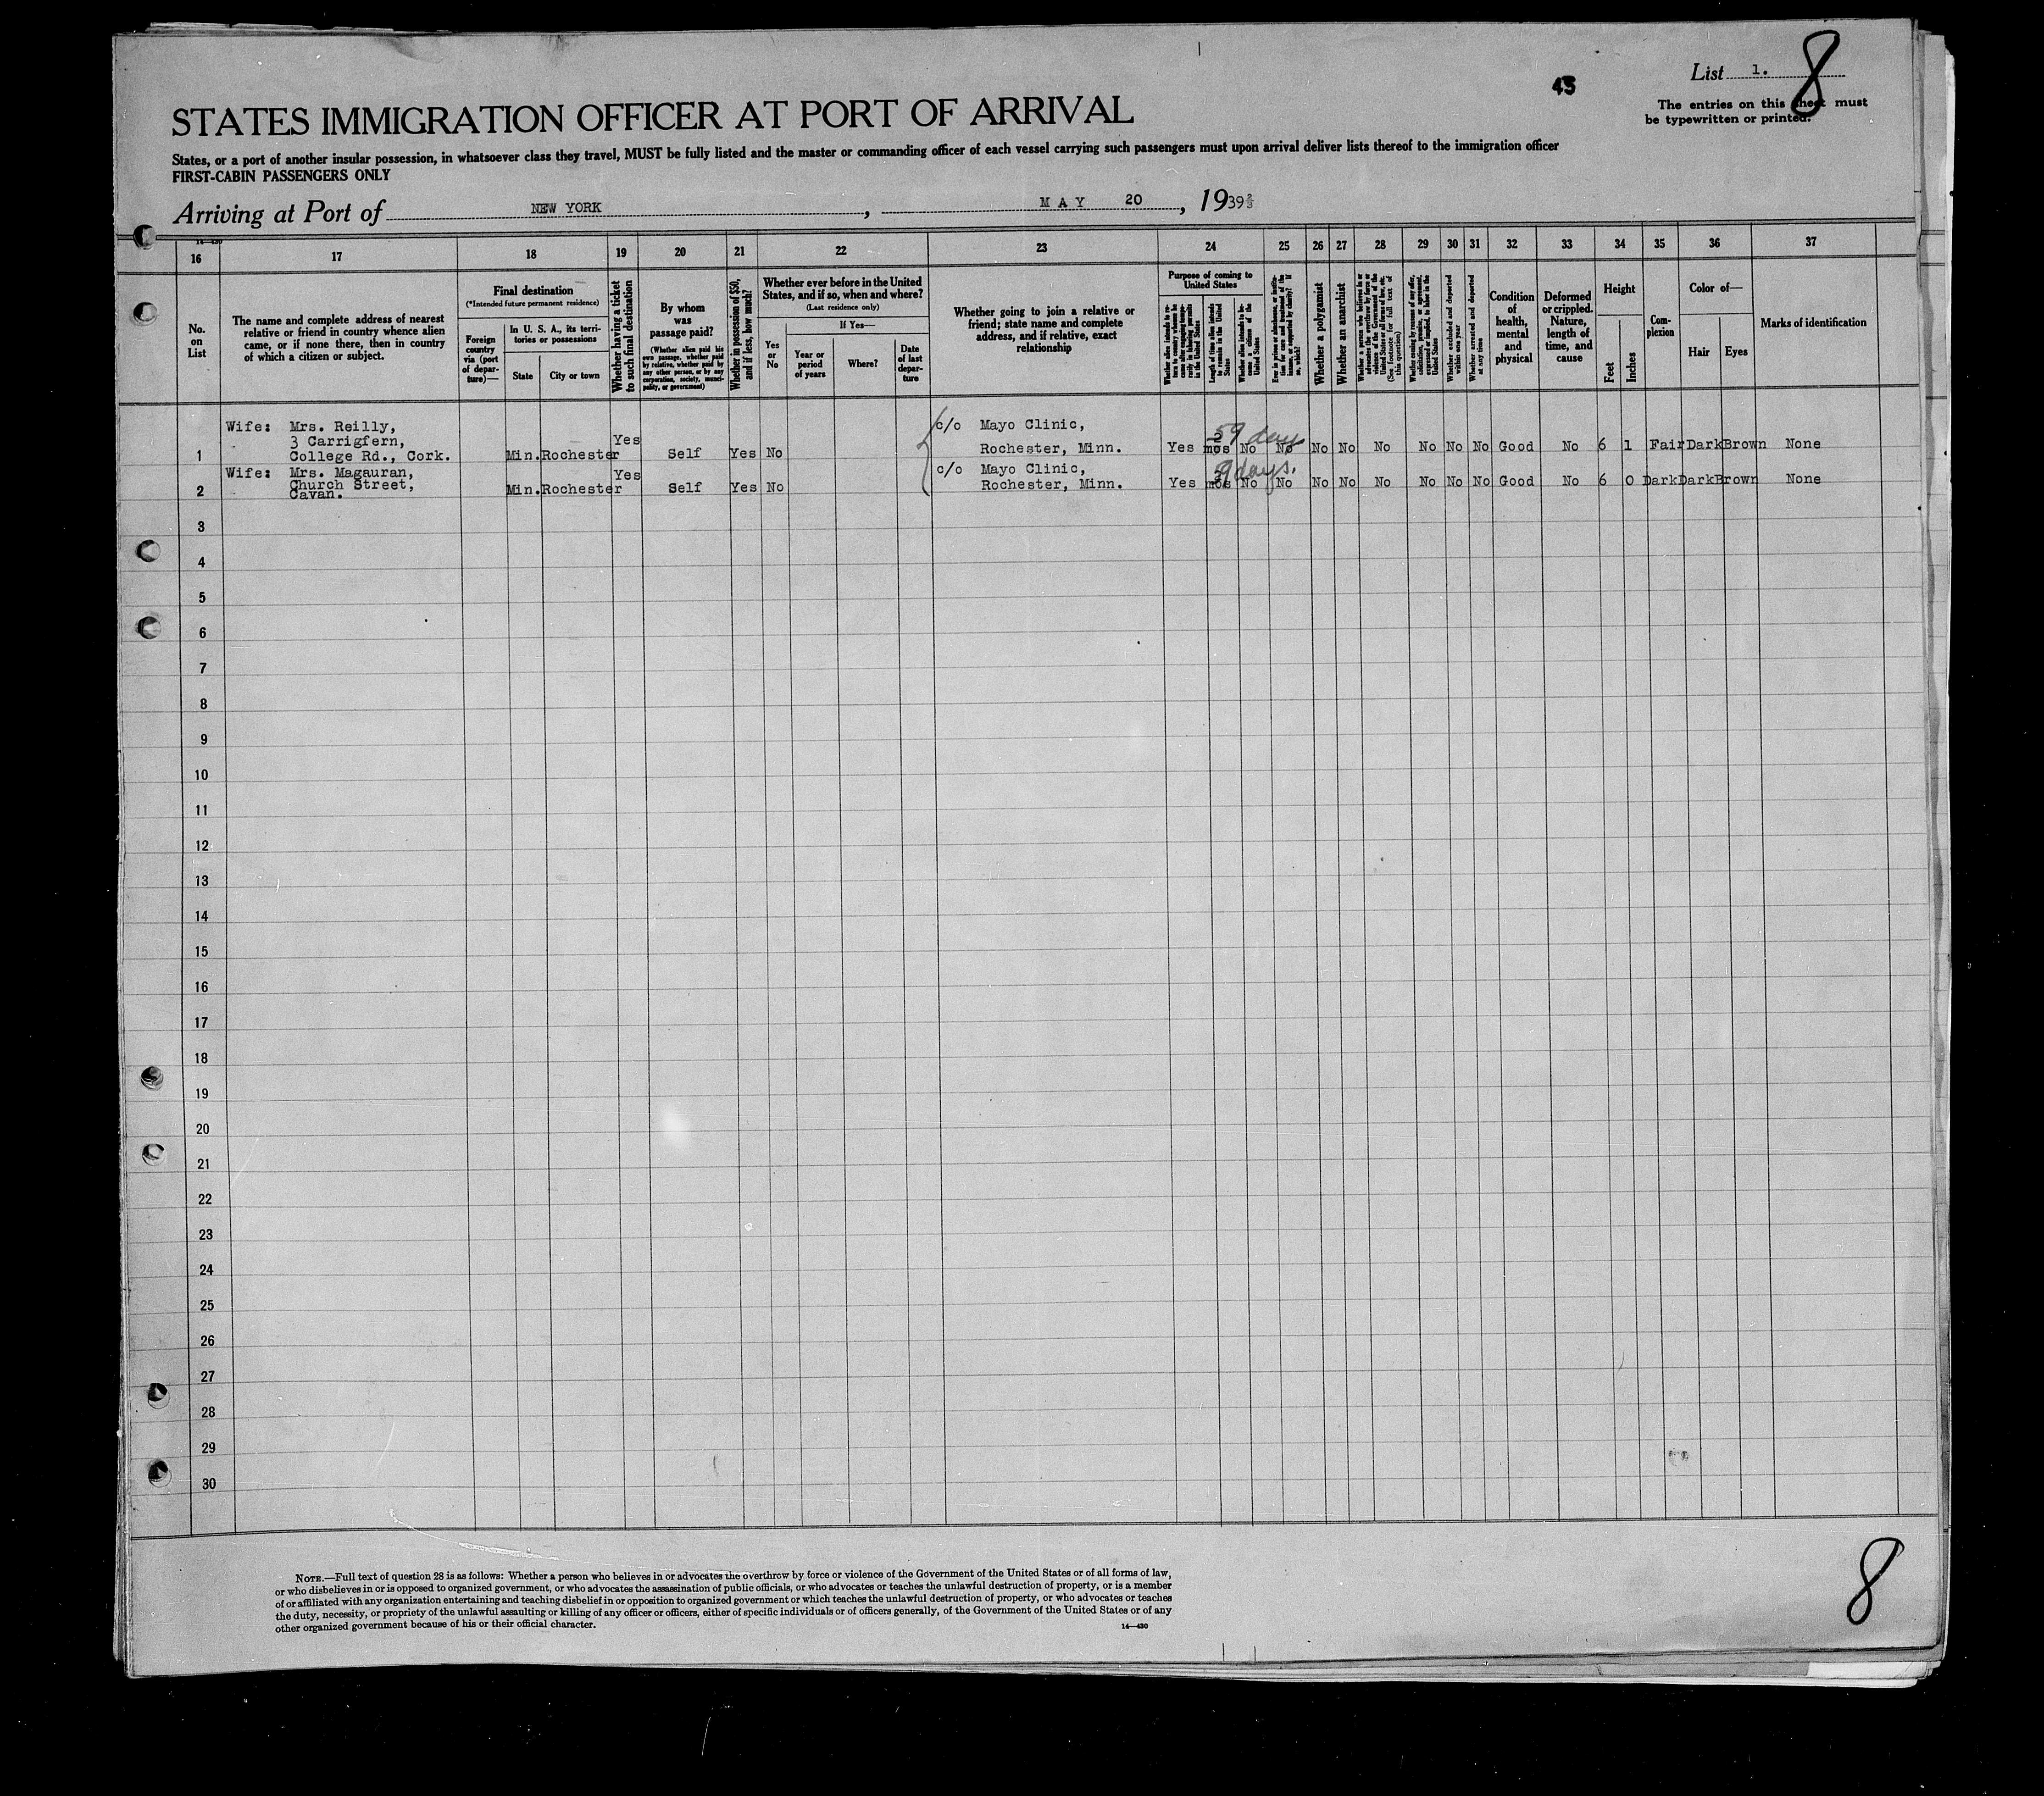 45
List 1.
8
The entries on this sheet must
be typewritten or printed.
STATES IMMIGRATION OFFICER AT PORT OF ARRIVAL
States, or a port of another insular possession, in whatsoever class they travel, MUST be fully listed and the master or commanding officer of each vessel carrying such passengers must upon arrival deliver lists thereof to the immigration officer
FIRST-CABIN PASSENGERS ONLY
Arriving at Port of NEW YORK, MAY 20, 1939
14—430
16 17 18 19 20 21 22 23 24 25 26 27 28 29 30 31 32 33 34 35 36 37
No.
on
List
The name and complete address of nearest
relative or friend in country whence alien
came, or if none there, then in country
of which a citizen or subject.
Final destination
(*Intended future permanent residence)
Foreign
country
via (port
of depar-
ture)—
In U. S. A., its terri-
tories or possessions
State
City or town
Whether having a ticket
to such final destination
By whom
was
passage paid?
(Whether alien paid his
own passage, whether paid
by relative, whether paid by
any other person, or by any
corporation, society, munici-
pality, or government)
Whether in possession of $50,
and if less, how much?
Whether ever before in the United
States, and if so, when and where?
(Last residence only)
Yes
or
No
If Yes—
Year or
period
of years
Where?
Date
of last
depar-
ture
Whether going to join a relative or
friend; state name and complete
address, and if relative, exact
relationship
Purpose of coming to
United States
Whether alien intends to re-
turn to country whence he
came after engaging tempo-
rarily in laboring pursuits
in the United States
Length of time alien intends
to remain in the United
States
Whether alien intends to be-
come a citizen of the
United States
Ever in prison or almshouse, or institu-
tion for care and treatment of the
insane, or supported by charity? If
so, which?
Whether a polygamist
Whether an anarchist
Whether a person who believes in or
advocates the overthrow by force or
violence of the Government of the
United States or all forms of law, etc.
(See footnote for full text of
this question)
Whether coming by reason of any offer,
solicitation, promise, or agreement,
expressed or implied, to labor in the
United States
Whether excluded and deported
within one year
Whether arrested and deported
at any time
Condition
of
health,
mental
and
physical
Deformed
or crippled.
Nature,
length of
time, and
cause
Height
Feet
Inches
Com-
plexion
Color of—
Hair
Eyes
Marks of identification
Wife: Mrs. Reilly,
3 Carrigfern,
College Rd., Cork.
1 Min. Rochester Yes Self Yes No
c/o Mayo Clinic,
Rochester, Minn.
59 days
Yes 2 mos No No No No No No No No Good No 6 1 Fair Dark Brown None
Wife: Mrs. Magauran,
Church Street,
Cavan.
2 Min. Rochester Yes Self Yes No
c/o Mayo Clinic,
Rochester, Minn.
59 days.
Yes mos No No No No No No No No Good No 6 0 Dark Dark Brown None
3
4
5
6
7
8
9
10
11
12
13
14
15
16
17
18
19
20
21
22
23
24
25
26
27
28
29
30
NOTE.—Full text of question 28 is as follows: Whether a person who believes in or advocates the overthrow by force or violence of the Government of the United States or of all forms of law,
or who disbelieves in or is opposed to organized government, or who advocates the assassination of public officials, or who advocates or teaches the unlawful destruction of property, or is a member
of or affiliated with any organization entertaining and teaching disbelief in or opposition to organized government or which teaches the unlawful destruction of property, or who advocates or teaches
the duty, necessity, or propriety of the unlawful assaulting or killing of any officer or officers, either of specific individuals or of officers generally, of the Government of the United States or of any
other organized government because of his or their official character.
14—430
8